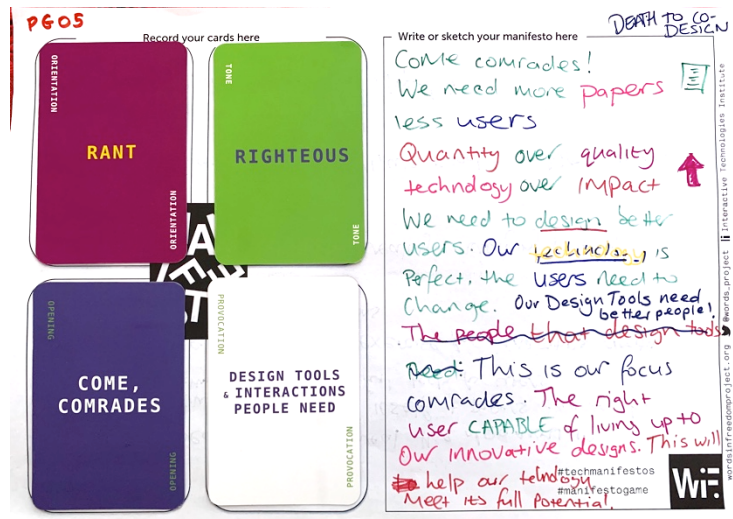 PG05
DEATH TO CO-
DESIGN
Record your cards here
Write or sketch your manifesto here
ORIENTATION
RANT
ORIENTATION
TONE
RIGHTEOUS
TONE
OPENING
COME,
COMRADES
OPENING
PROVOCATION
DESIGN TOOLS
& INTERACTIONS
PEOPLE NEED
PROVOCATION
Come comrades!
We need more papers
less users
Quantity over quality
technology over IMPact
We need to design better
users. Our technology is
Perfect, the users need to
Change. Our Design Tools need
better people!
The people that design tools
Need: This is our focus
comrades. The right
user CAPABLE of living up to
Our innovative designs. This will
help our technology
Meet its full potential.
#techmanifestos
#manifestogame
WiF.
wordsinfreedomproject.org @words_project Interactive Technologies Institute